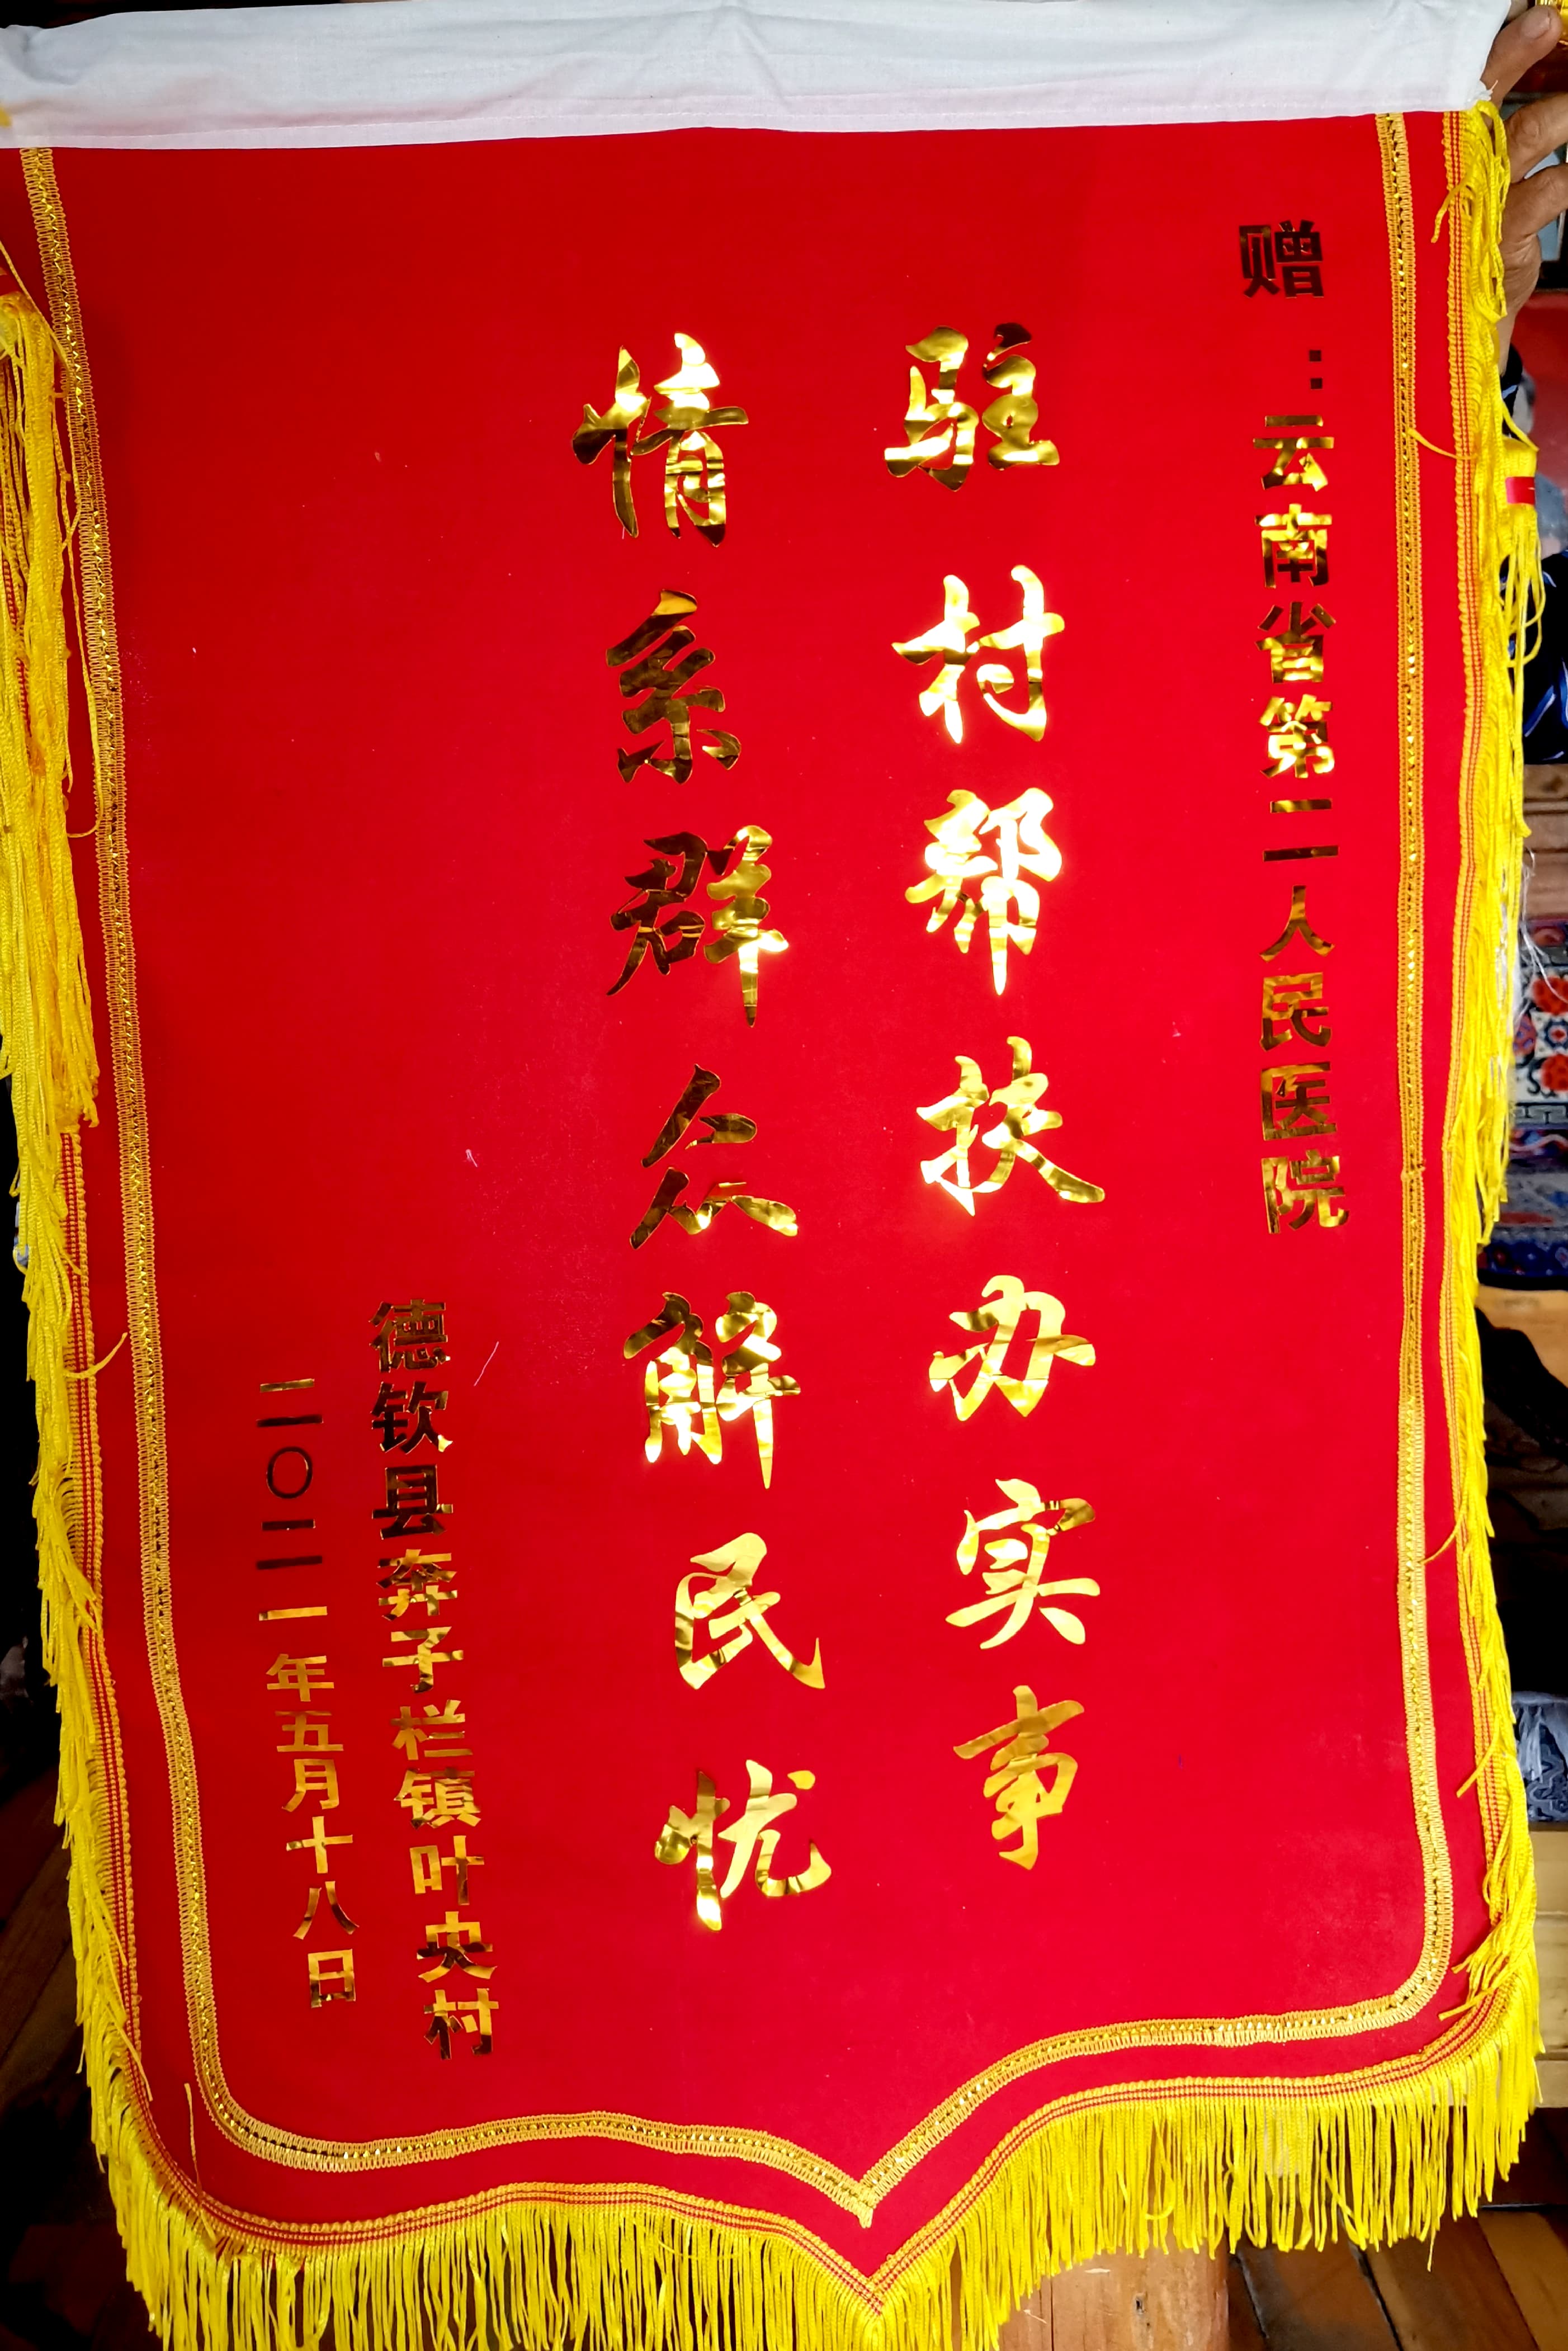 赠：云南省第二人民医院
驻村帮扶办实事
情系群众解民忧
德钦县奔子栏镇叶央村
二〇二一年五月十八日